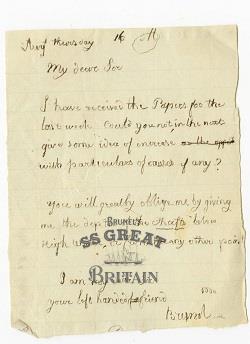 Augt Thursday 16
My dear Sir
I have received the Papers for the
last week. Could you not, in the next
give some idea of increase
with particulars of cases if any?
You will greatly oblige me by giving
me the the Shaft below
high any other point
BRUNEL'S
SS GREAT
BRITAIN
I am
your left handed friend
Brunel